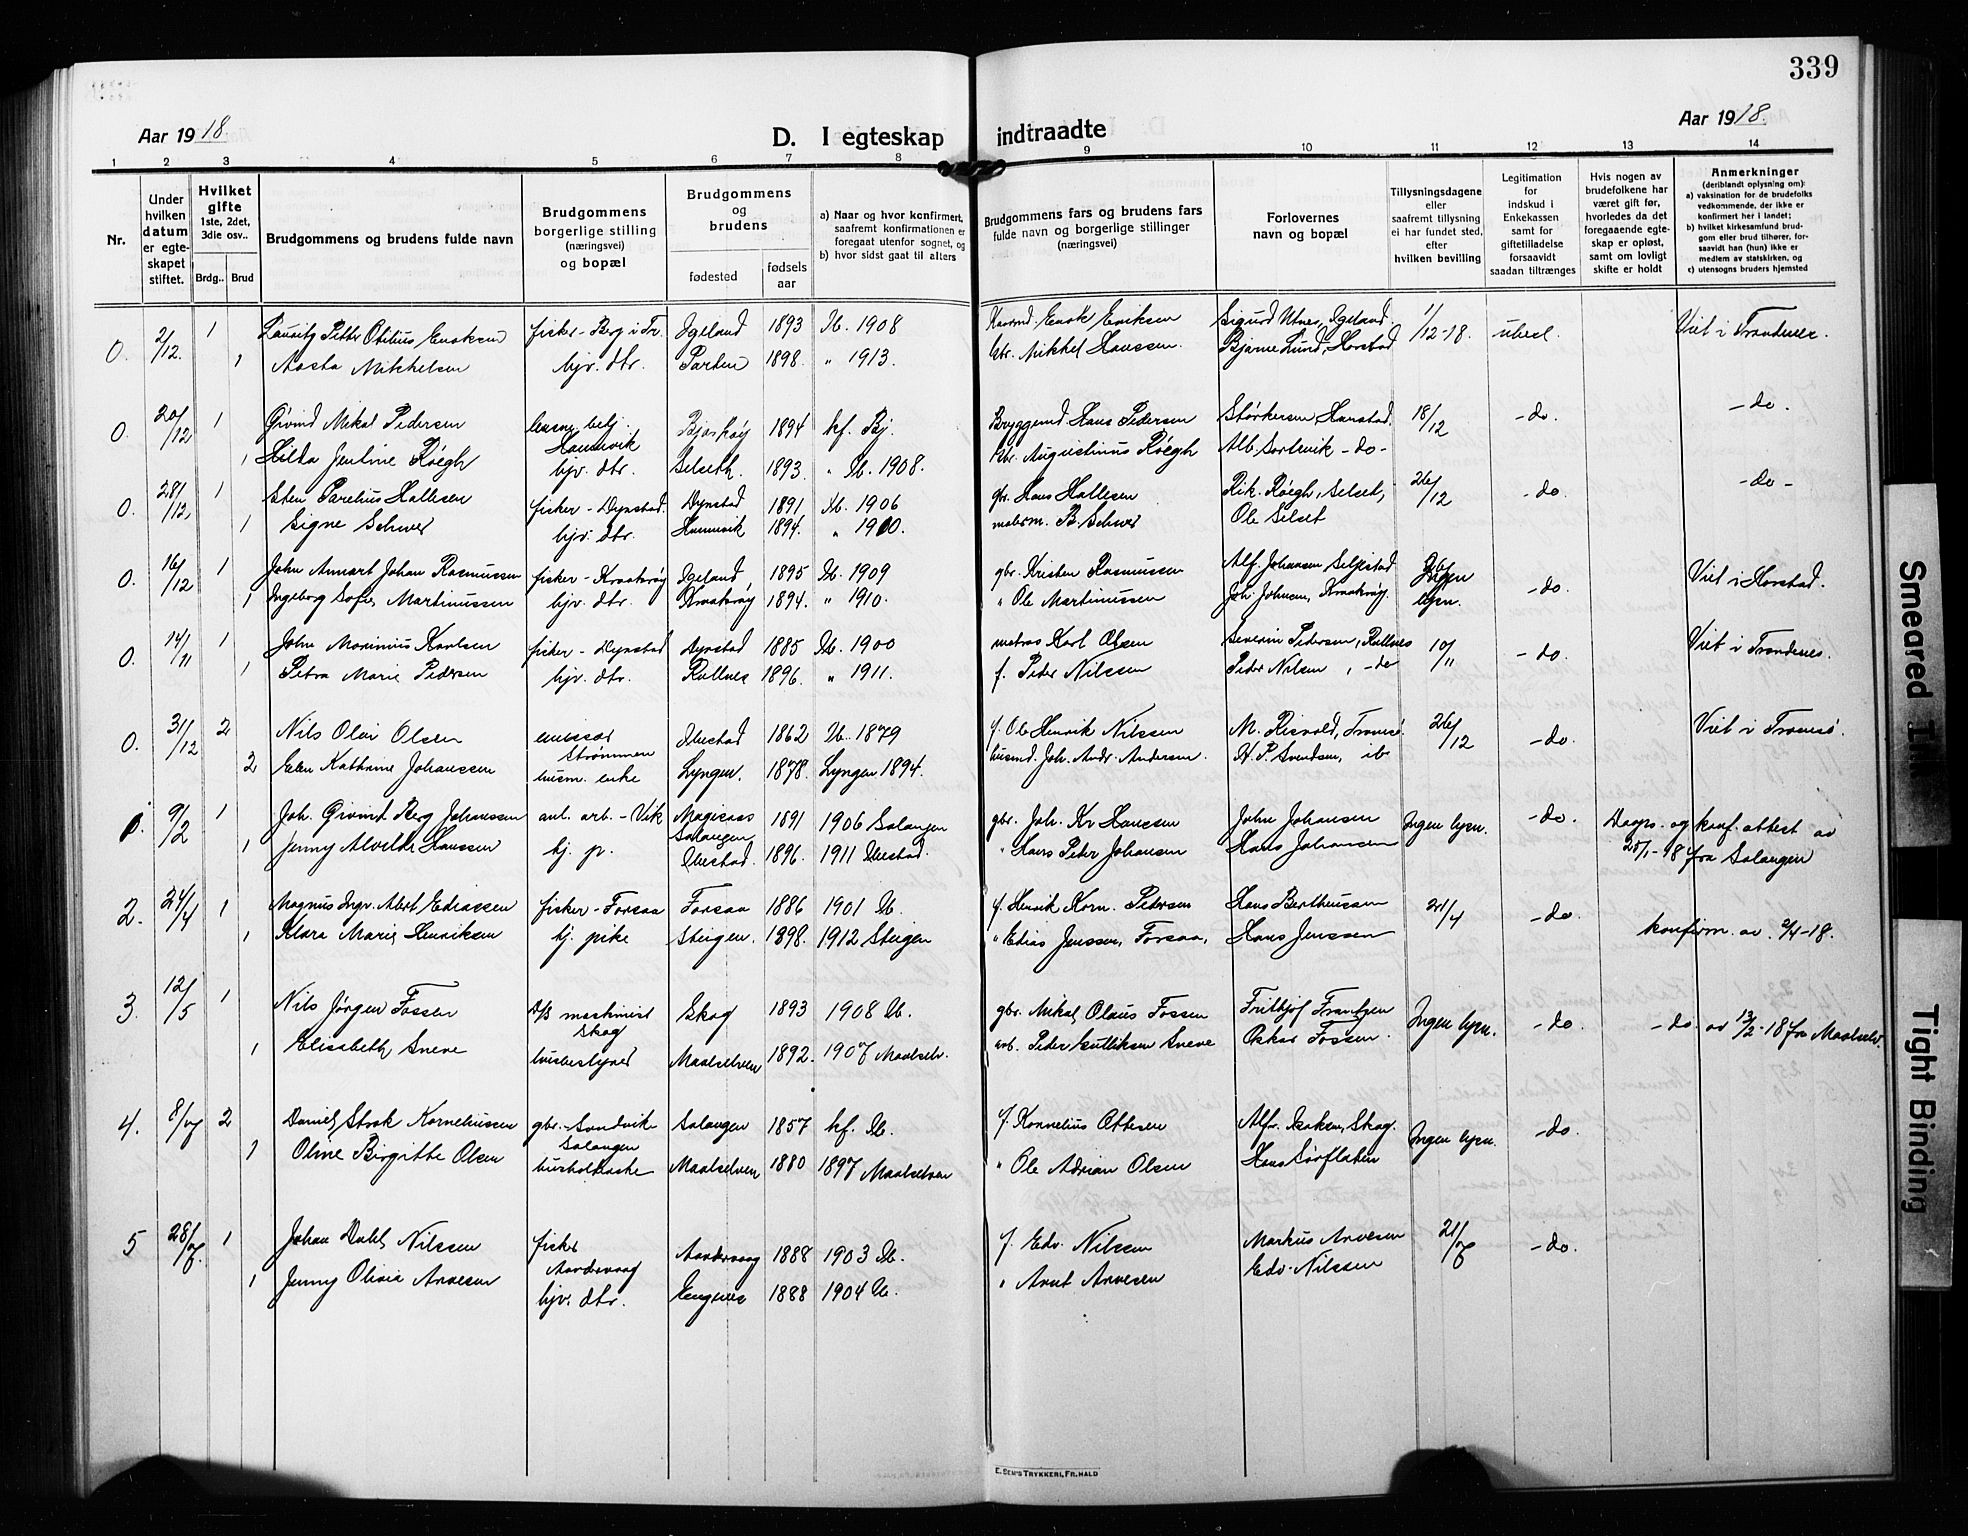 339
Aar 1918.
Aar 1918.
D. I egteskap indtraadte
1 2 3 4 5 6 7 8 9 10 11 12 13 14
Nr.
Under hvilken datum er egteskapet stiftet.
Hvilket gifte 1ste, 2det, 3die osv..
Brdg.. Brud
Brudgommens og brudens fulde navn
Brudgommens borgerlige stilling (næringsvei) og bopæl
Brudgommens og brudens
fødested
fødsels aar
a) Naar og hvor konfirmert, saafremt konfirmationen er foregaat utenfor sognet, og
b) hvor sidst gaat til alters
Brudgommens fars og brudens fars fulde navn og borgerlige stillinger (næringsvei)
Forlovernes navn og bopæl
Tillysningsdagene eller saafremt tillysning ei har fundet sted, efter hvilken bevilling
Legitimation for indskud i Enkekassen samt for giftetilladelse forsaavidt saadan tiltrænges
Hvis nogen av brudefolkene har været gift før, hvorledes da det foregaaende egteskap er opløst, samt om lovligt skifte er holdt
Anmerkninger (deriblandt oplysning om):
a) vaksination for de brudefolks vedkommende, der ikke er konfirmert her i landet;
b) hvilket kirkesamfund brudgom eller brud tilhører, forsaavidt han (hun) ikke er medlem av statskirken, og
c) utensogns bruders hjemsted
0. 2/12. 1 Lauritz Petter Otelius Enoksen fisker - Berg i Tr. Igeland 1893 Ib. 1908 Enok Eriksen Sigurd Utnes, Igeland. 1/12-18. ubesl. Viet i Trondenes.
1 Aasta Mikkelsen hjv. dtr. 1898. " 1913. gbr. Mikkel Hanssen. Bjarne Lund, Harstad
0. 20/12 1 Øivind Mikal Pedersen Hamnvik Bjarkøy 1894 kf. Bj. Bryggemd Hans Pedersen Størkersen Harstad. 18/12 - do. - do.
1 Hilda Jentine Röegh hjv. dtr. Selseth. 1893. " Ib. 1908. gbr. Augustinus Röegh Alb. Sortevik - do -
0. 28/12. 1 Sten Parelius Hallesen fisker - Dyrstad. Dyrstad 1891 Ib. 1906 gbr. Hans Hallesen Rik. Röegh, Selset, 26/12 - do. - do -
1 Signe Schwer hjv. dtr. Hamnvik 1894. " 1910. malerm. B. Schwer Ole Selset
0. 16/12 1 John Annart Johan Rasmussen fisker - Kraakrøy Igeland, 1895 Ib. 1909 gbr. Kristen Rasmussen Alf Johansen Seljestad Ingen lysn. - do. Viet i Harstad.
1 Ingeborg Sofie Martinussen hjv. dtr. Kraakrøy 1894. " 1910. " Ole Martinussen Joh. Johnsen, Kraakrøy.
0. 14/11 1 John Morinius Karlsen fisker - Dyrstad Dyrstad 1885 Ib. 1900 matros Karl Olsen Severin Pedersen, Rollnes 10/11 - do. Viet i Trondenes.
1 Petra Marie Pedersen hjv. dtr. Rollnes 1896. " 1911. f. Peder Nilssen Peder Nilsen, - do
0. 31/12 2 Nils Olai Olsen emissær Strømmen Ibestad 1862 Ib. 1879 f. Ole Henrik Nilssen M. Risvold, Tromsø. 26/12 - do. Viet i Tromsø.
2 Elen Kathrine Johanssen husm. enke Lyngen. 1878. Lyngen 1894. husmd. Joh. Andr. Andersen. H. P. Svendsen, ib
1. 9/2 1 Joh. Eivind Berg Johanssen anl. arb. - Vik Salangen 1891 1906 Salangen gbr. Joh. Kr Hanssen John Johansen Ingen lysn. - do. Daaps. og konf. attest av
1 Jenny Alvilde Hanssen hj. p. Ibestad. 1896. 1911 Ibestad. " Hans Peder Johansen Hans Johansen 28/1-18 fra Salangen
2. 24/4 1 Magnus Ingv. Abert Ediassen fisker - Forsaa Forsaa 1886 1901 Ib. f. Henrik Korn. Pedersen Hans Bertheussen 21/4 - do. konfirm. av. 2/4-18.
1 Klara Marie Henriksen hj. pike Steigen. 1898. 1912 Steigen " Edias Jenssen, Forsaa, Hans Jenssen
3. 12/5 1 Nils Jørgen Fossen D/S maskinist Skog Skog 1893 1908 Ib. gbr. Mikal Olaus Fossen Fritjof Frantzen Ingen lysn. - do. - do. av 12/2-18 fra Maalselv.
1 Elisabeth Sneve husbestyrer Maalselven 1892. 1907 Maalselv. arb. Peder Gulliksen Sneve Oskar Fossen.
4. 8/7 2 Daniel Strok Korneliussen gbr. - Sandvik Salangen Salangen 1857 kf. Ib. f. Kornelius Ottesen Alfr. Isaksen, Skog. Ingen lysn. - do.
1 Oline Birgitte Olsen husholderske Maalselven 1880 1897 Maalselven " Ole Adrian Olsen Hans Sørflaten
5 28/7. 1 Johan Dahl Nilssen fisker Aandervaag Aandervaag 1888 1903 Ib. f. Edv. Nilssen Markus Arvesen 21/7 - do.
1 Jenny Olivia Arvesen hjv. dtr. Engenes 1888 1904 Ib. " Arnt Arvesen Edv. Nilssen
E. SEM'S TRYKKERI, FR. HALD
Smeared Ink
Tight Binding